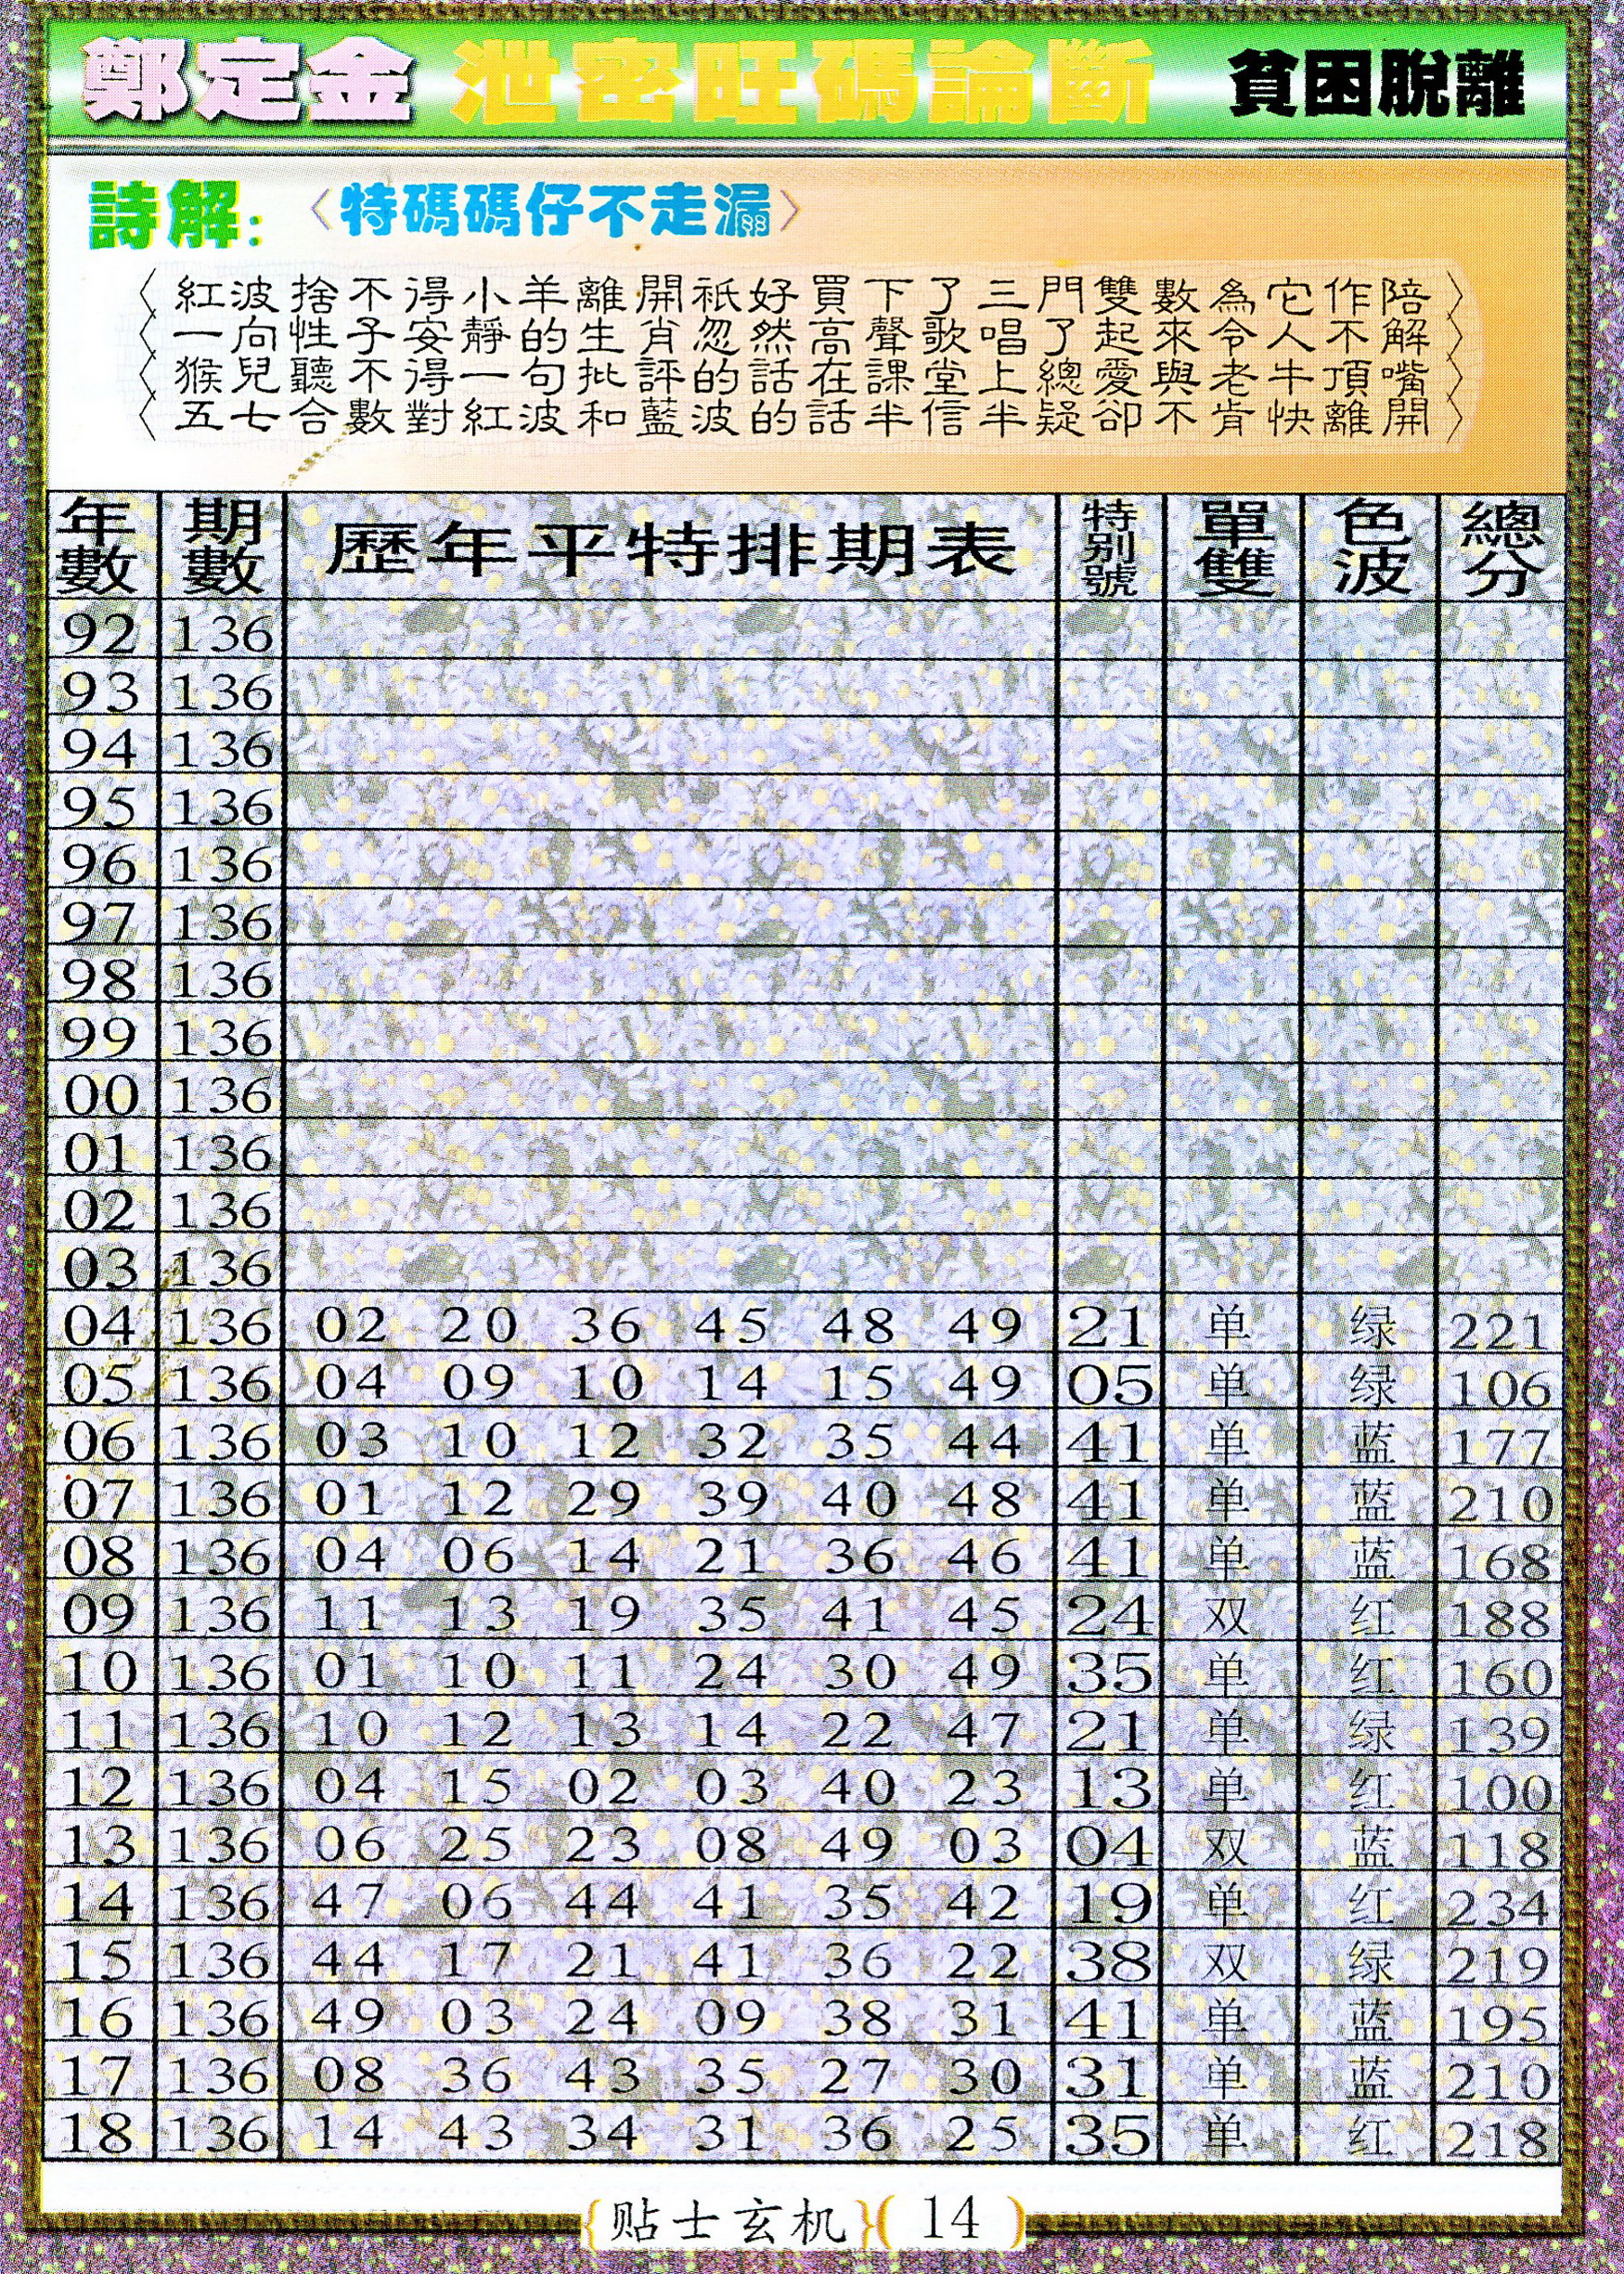 鄭定金 泄密旺碼論斷 貧困脫離
詩解: 〈特碼碼仔不走漏〉
〈紅波捨不得小羊離開祇好買下了三門雙數為它作陪〉
〈一向性子安靜的生肖忽然高聲歌唱了起來令人不解〉
〈猴兒聽不得一句批評的話在課堂上總愛與老牛頂嘴〉
〈五七合數對紅波和藍波的話半信半疑卻不肯快離開〉
年數 期數 歷年平特排期表 特别號 單雙 色波 總分
92 136
93 136
94 136
95 136
96 136
97 136
98 136
99 136
00 136
01 136
02 136
03 136
04 136 02 20 36 45 48 49 21 单 绿 221
05 136 04 09 10 14 15 49 05 单 绿 106
06 136 03 10 12 32 35 44 41 单 蓝 177
07 136 01 12 29 39 40 48 41 单 蓝 210
08 136 04 06 14 21 36 46 41 单 蓝 168
09 136 11 13 19 35 41 45 24 双 红 188
10 136 01 10 11 24 30 49 35 单 红 160
11 136 10 12 13 14 22 47 21 单 绿 139
12 136 04 15 02 03 40 23 13 单 红 100
13 136 06 25 23 08 49 03 04 双 蓝 118
14 136 47 06 44 41 35 42 19 单 红 234
15 136 44 17 21 41 36 22 38 双 绿 219
16 136 49 03 24 09 38 31 41 单 蓝 195
17 136 08 36 43 35 27 30 31 单 蓝 210
18 136 14 43 34 31 36 25 35 单 红 218
{贴士玄机}(14)